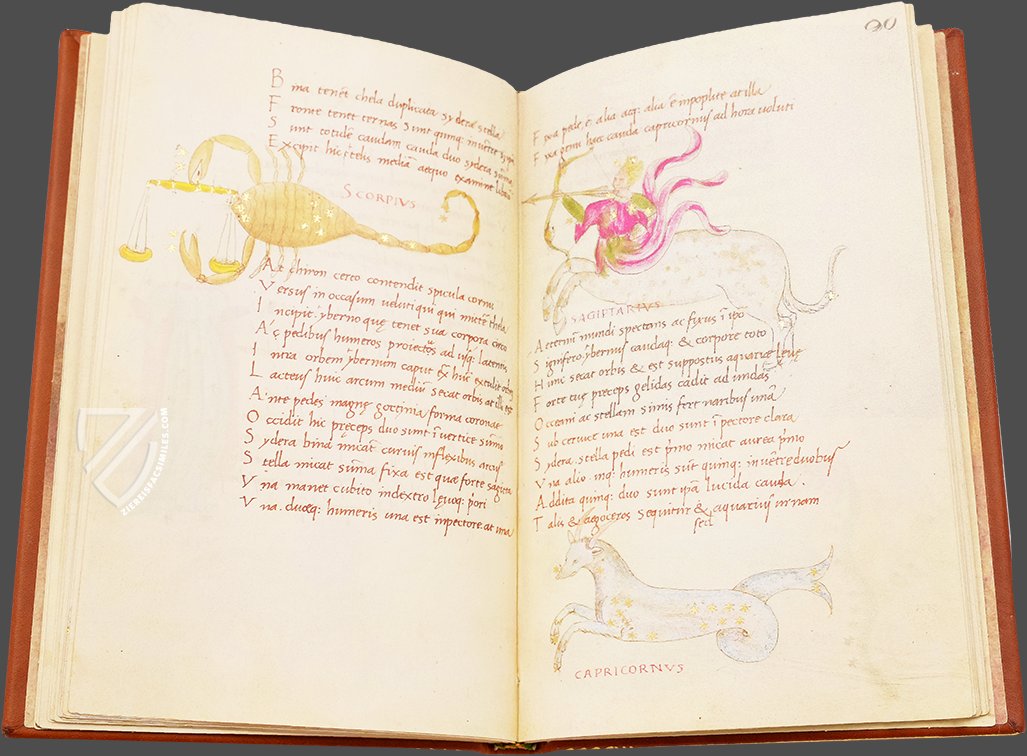 B ina tenēt chela duplicata sydera stella
F ronte tenet ternas Sunt quinq: inuētre
S unt totidē caudam cauda duo sydera sūma
E xcipit hic telis mediam aequo examine librā
SCORPIUS
At chiron cereo contendit spicula cornu
V ersus in occasum ueluti qui qui mictēt
I ncipit: yberno quę tenet sua corpora circo
A c pedibus humeros proiectos ad usq: latentis
I ntra orbem ybernum caput
L acteus huic arcum mediū secat orbis at illa est
A nte pedes magnę goccinia forma coronae
O ccidit hic pręceps duo sunt ī uertice sūmo
S ydera bina micāt curuis inflexibus arcus
S tella micat sūma fixa est quae forte sagitta
V na manet cubito indextro pōri
V na. duaeq: humeris una est inpectore. at una
20
F ixa pede, ē alia atq: alia ē inpoplite at illa
F ixa genu haec cauda capricornus ad hora uoluti
SAGIPTARIVS
A eterni mundi spectans ac fixus ī ipo
S ignifero ybernus caudaq: & corpore toto
H umi secat orbis & est suppostus aquariae leuę
F orte preceps gelidas cadit ad undas
O ceani ac stellam simis fert naribus unā
S ub ceruice una est duo sunt ī pectore clara
S ydera. stella pedi est pīno micat aurea pīnio
V na alio. inq: humeris sūt quinq: inuētre duobus
A ddita quinq: duo sunt lucida cauda.
T alis & aegoceros sequitur & aquarius urnam
sed
CAPRICORNVS
ZIEREISFACSIMILES.COM